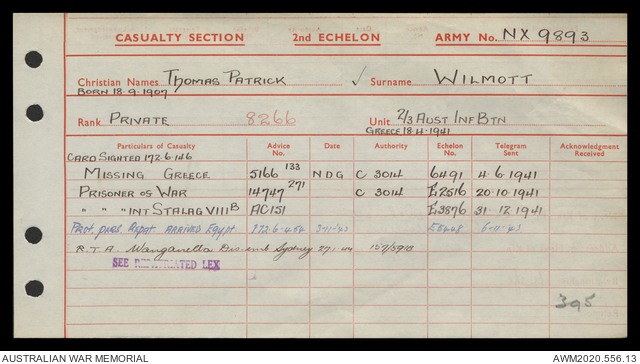 CASUALTY SECTION 2nd ECHELON ARMY No. NX 9893
Christian Names THOMAS PATRICK ✓ Surname WILMOTT
BORN 18.9.1907
Rank PRIVATE 8266 Unit 2/3 AUST INF BTN
GREECE 18.4.1941
Particulars of Casualty Advice No. Date Authority Echelon No. Telegram Sent Acknowledgment Received
CARD SIGHTED 172.6.146
MISSING GREECE 5166 133 N D G C 3014 6491 4.6.1941
PRISONER OF WAR 14747 271 C 3014 E2516 20.10.1941
" " " INT STALAG VIII B AC151 E3876 31.12.1941
Prot. pers. Repat. ARRIVED Egypt 172.6.454
R.T.A. Wanganella Sydney 157/57/8
SEE REPATRIATED LEX
395
AUSTRALIAN WAR MEMORIAL AWM2020.556.13